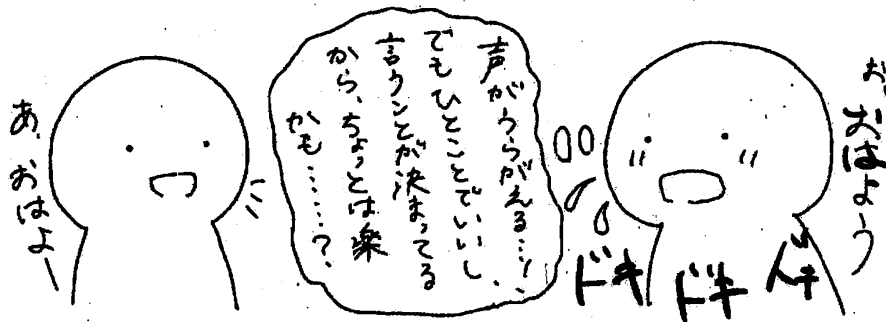 お、
おはよう
ドキ
ドキ
ドキ
声がうらがえる…！
でもひとことでいいし、
言うことが決まってる
から、ちょっとは楽
かも……？
あ、おはよー